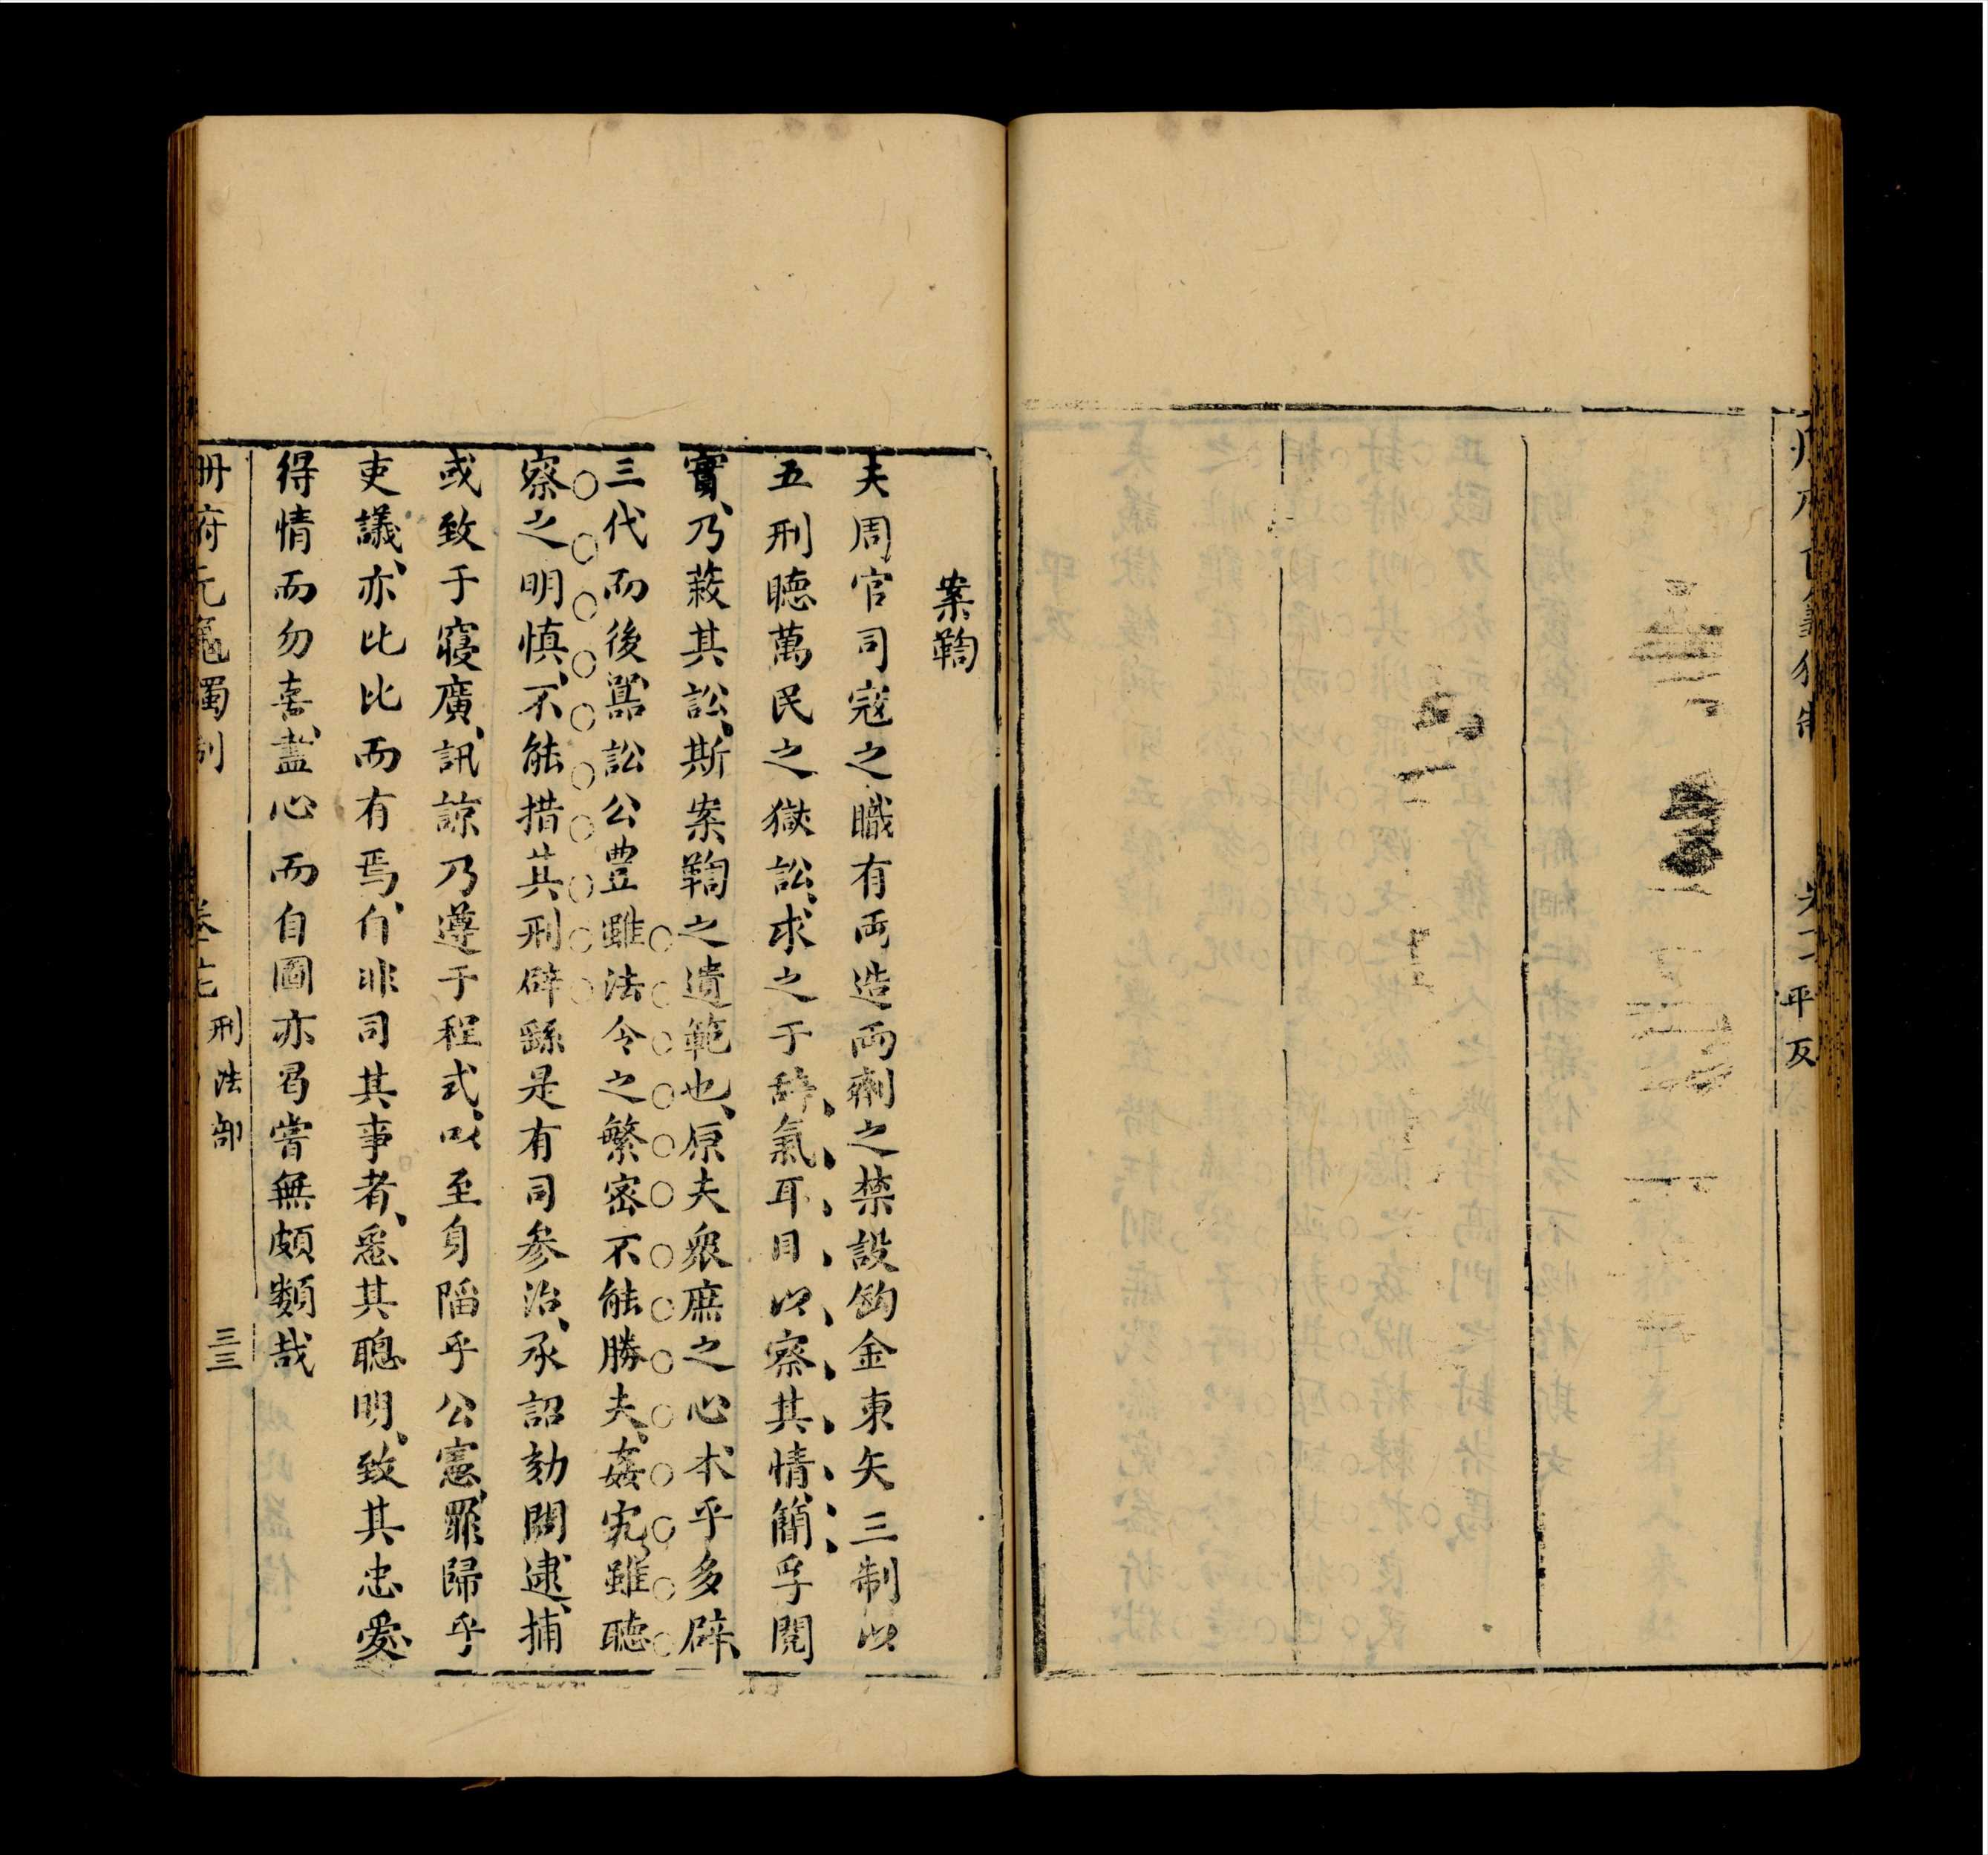 平反
案鞫
夫周官司寇之職有両造両劑之禁設鈎金束矢三制以
五刑聴萬民之獄訟求之于辭氣耳目以察其情簡孚閱
實乃蔽其訟斯案鞫之遺範也原夫衆庶之心本乎多辟
三代而後嚚訟公豊雖法令之繁密不能勝夫姦宄雖聴
察之明慎不能措其刑辟繇是有司參治承詔劾問逮捕
或致于寖廣訊諒乃遵于程式以至身陷乎公憲罪歸乎
吏議亦比比而有焉自非司其事者悉其聰明致其忠愛
得情而勿喜盡心而自圖亦曷嘗無頗纇哉
冊府元龜獨制
刑法部
三三